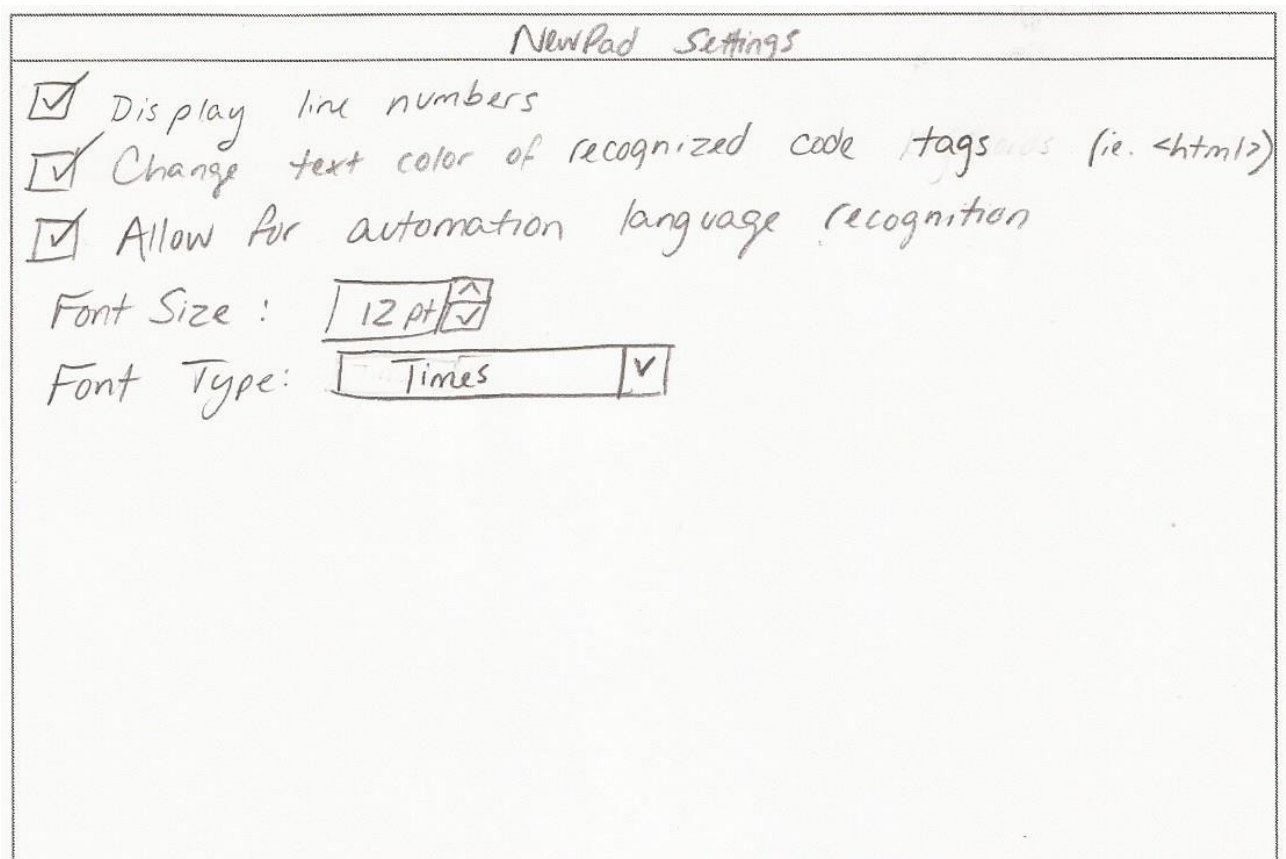 NewPad Settings
Display line numbers
Change text color of recognized code tags (ie. <html>)
Allow for automation language recognition
Font Size : 12 pt
Font Type: Times